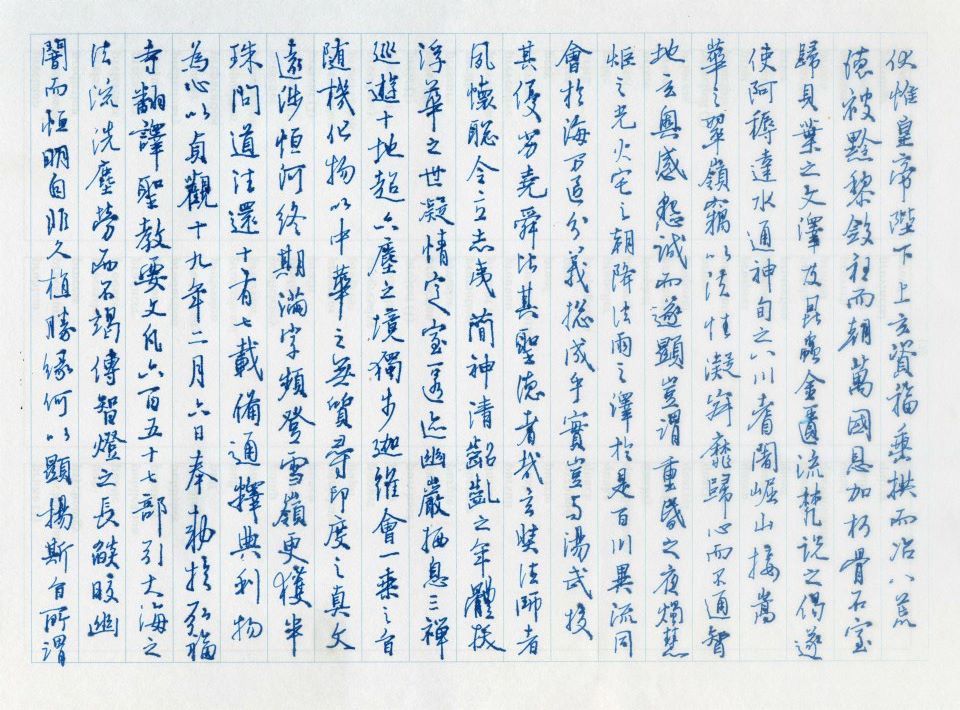 伏惟皇帝陛下上玄資福垂拱而治八荒
德被黔黎斂衽而朝萬國恩加朽骨石室
歸貝葉之文澤及昆蟲金匱流梵說之偈遂
使阿耨達水通神甸之八川耆闍崛山接嵩
華之翠嶺竊以法性凝寂靡歸心而不通智
地玄奧感懇誠而遂顯豈謂重昏之夜燭慧
炬之光火宅之朝降法雨之澤於是百川異流同
會於海萬區分義揔成乎實豈與湯武挍
其優劣堯舜比其聖德者哉玄奘法師者
夙懷聰令立志夷簡神清齠齔之年體拔
浮華之世凝情定室匿迹幽巖栖息三禪
巡遊十地超六塵之境獨步迦維會一乘之旨
随機化物以中華之無質尋印度之真文
遠涉恒河終期滿字頻登雪嶺更獲半
珠問道往還十有七載備通釋典利物
為心以貞觀十九年二月六日奉勅於弘福
寺翻譯聖教要文凡六百五十七部引大海之
法流洗塵勞而不竭傳智燈之長燄皎幽
闇而恒明自非久植勝緣何以顯揚斯旨所謂